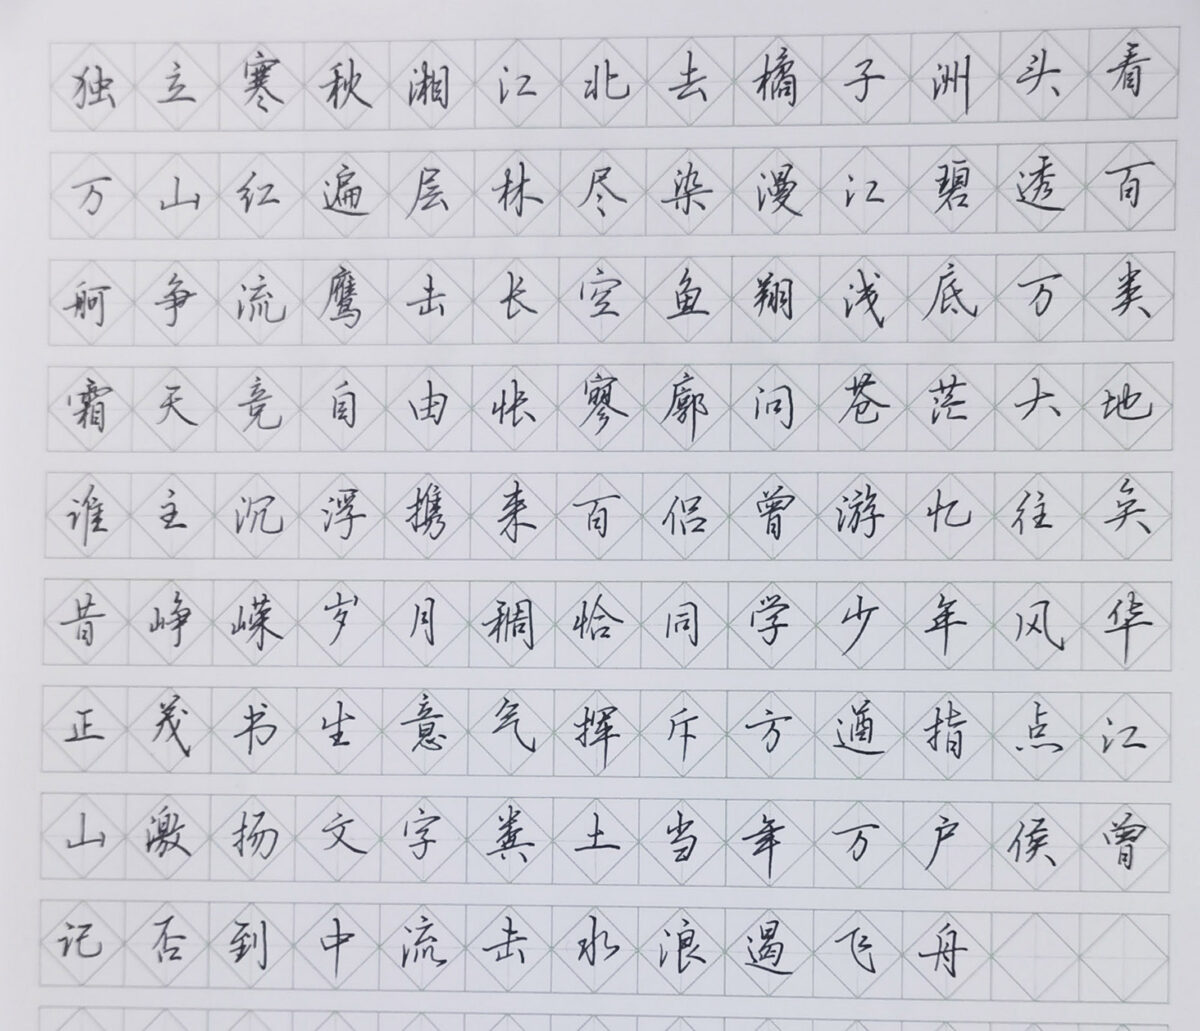 独立寒秋湘江北去橘子洲头看
万山红遍层林尽染漫江碧透百
舸争流鹰击长空鱼翔浅底万类
霜天竞自由怅寥廓问苍茫大地
谁主沉浮携来百侣曾游忆往矣
昔峥嵘岁月稠恰同学少年风华
正茂书生意气挥斥方遒指点江
山激扬文字粪土当年万户侯曾
记否到中流击水浪遏飞舟